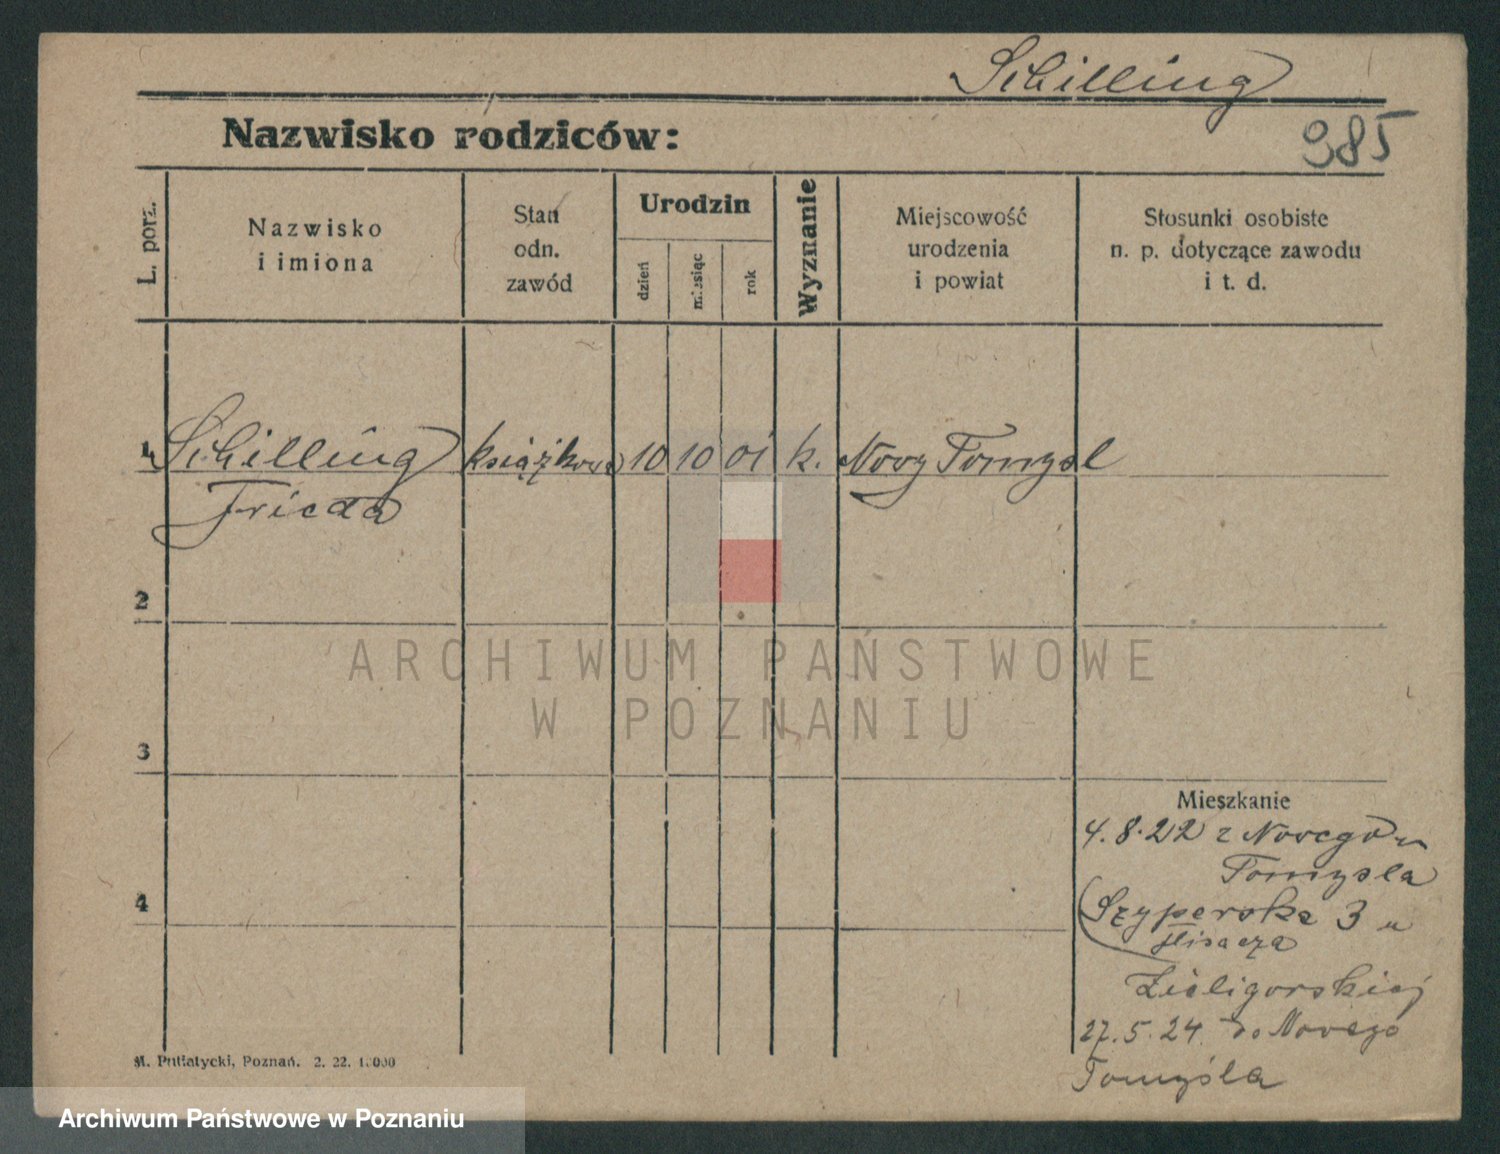 Schilling
Nazwisko rodziców:
985
L. porz.
Nazwisko
i imiona
Stan
odn.
zawód
Urodzin
dzień
miesiąc
rok
Wyznanie
Miejscowość
urodzenia
i powiat
Stosunki osobiste
n. p. dotyczące zawodu
i t. d.
1 Schilling książkowa 10 10 01 k. Nowy Tomysl
Frieda
2
ARCHIWUM PAŃSTWOWE
W POZNANIU
3
Mieszkanie
4.8.22 z Nowego
Tomysla
4
Szyperska 3 u
27.5.24 do Nowego
Tomyśla
M. Putiatycki, Poznań. 2. 22. 1.000
Archiwum Państwowe w Poznaniu